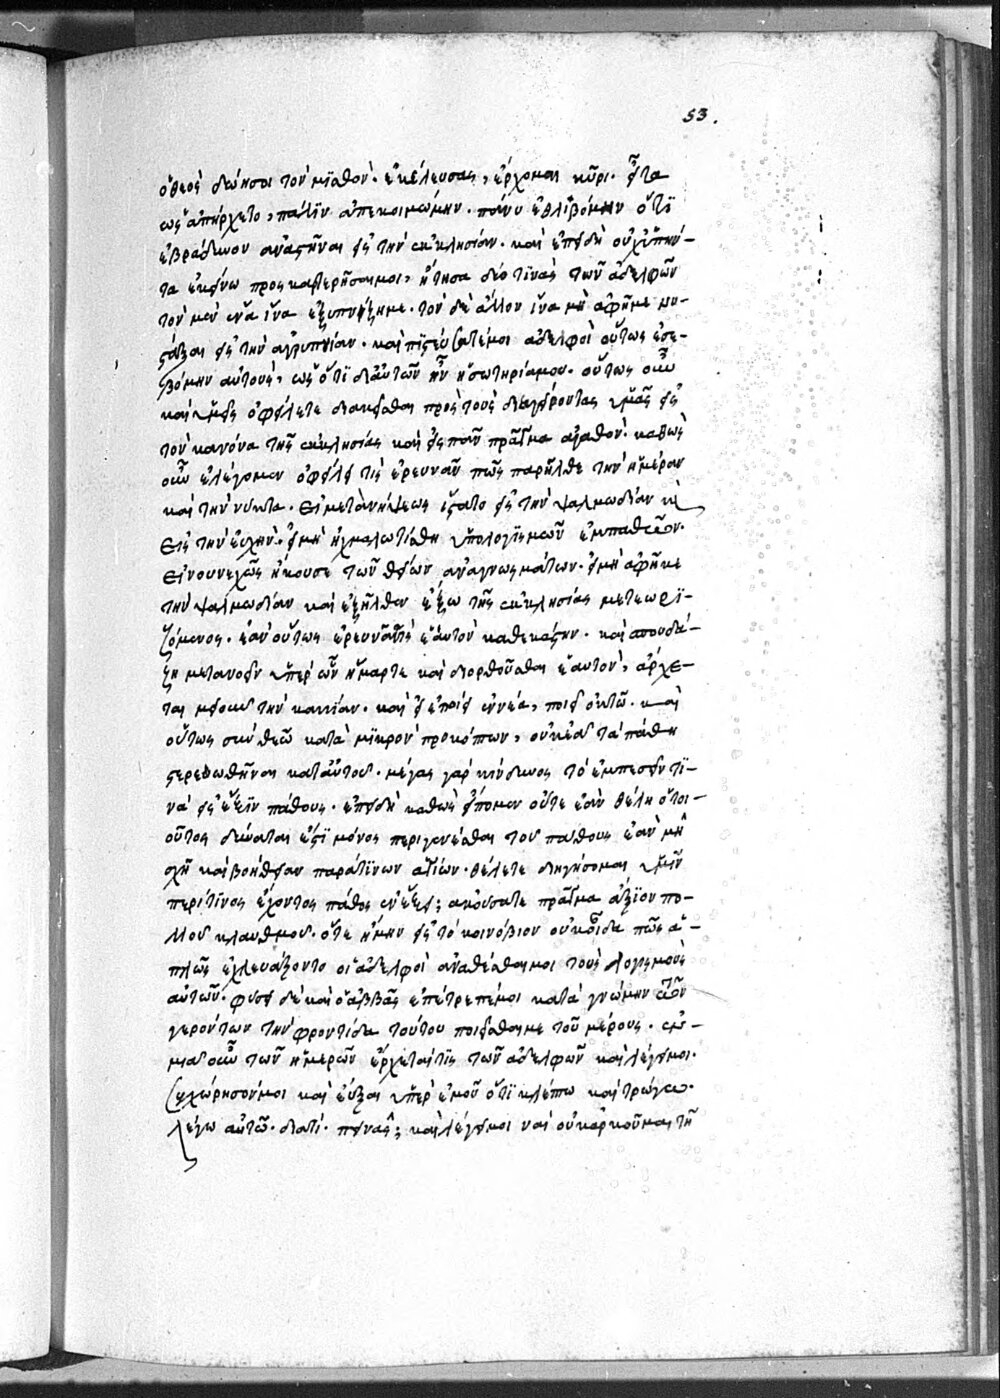 53.
ὁ θεὸς δώησοι τὸν μϊσθὸν. ἐκέλευσας, ἔρχομαι κῦρι. εἶτα
ὡς ἀπήρχετο, πάλϊν ἀπεκοιμώμην. πάνυ ἐθλιβόμην ὅτϊ
ἐβράδυνον ἀναστῆναι εἰς τὴν ἐκκλησίαν. καὶ ἐπειδὴ οὐχὶ πην-
τα ἐκείνω προσκαρτερῆσαι μοι, ἤτησα δύο τϊνὰς τῶν ἀδελφῶν
τὸν μὲν ἕνα ἵνα ἐξυπνίζη με. τὸν δὲ ἄλλον ἵνα μὴ ἀφῆ με νυ-
στάξαι εἰς τὴν ἀγρυπνίαν. καὶ πϊστεύσατέ μοι ἀδελφοὶ οὕτως ἐσε-
βόμην αὐτοὺς, ὡς ὅτϊ δι αὐτῶν ἦν ἡ σωτηρία μου. οὕτως οὖν
καὶ ὑμεῖς ὀφείλετε διακεῖσθαι πρὸς τοὺς διεγείροντας ὑμᾶς εἰς
τὸν κανόνα τῆς ἐκκλησίας καὶ εἰς πᾶν πρᾶγμα ἀγαθὸν. καθὼς
οὖν ἐλέγομεν ὀφείλει τὶς ἐρευνᾶν πῶς παρῆλθε τὴν ἡμέραν
καὶ τὴν νύκτα. εἰ μετὰ νήψεως ἵστατο εἰς τὴν ψαλμωδίαν κὶ
εἰς τὴν εὐχὴν. εἰ μὴ ἠχμαλωτίσθη ὑπὸ λογϊσμῶν ἐμπαθῶν.
εἰ νουνεχῶς ἤκουσε τῶν θείων ἀναγνωσμάτων. εἰ μὴ ἀφῆκε
τὴν ψαλμωδίαν καὶ ἐξῆλθεν ἔξω τῆς ἐκκλησίας μετεωρϊ-
ζόμενος. ἐὰν οὕτως ἐρευνᾶ τὶς ἑαυτὸν καθεκάστην. καὶ σπουδά-
ζη μετανοεῖν ὑπὲρ ὧν ἥμαρτε καὶ διορθοῦσθαι ἑαυτὸν, ἄρχε-
ται μειοῦν τὴν κακίαν. καὶ εἰ ἐποίει ἐννέα, ποιεῖ ὀκτῶ. καὶ
οὕτως σὺν θεῶ κατὰ μϊκρὸν προκόπτων, οὐκ ἐᾶ τὰ πάθη
στερεωθῆναι κατ αὐτοῦ. μέγας γὰρ κίνδυνος τὸ ἐμπεσεῖν τϊ-
νὰ εἰς ἕξϊν πάθους. ἐπειδὴ καθὼς εἴπομεν οὔτε ἐὰν θέλη ὁ τοι-
οῦτος δύναται ἔτϊ μόνος περιγενέσθαι τοῦ πάθους ἐὰν μὴ
σχῆ καὶ βοήθειαν παρά τϊνων ἁγίων. θέλετε διηγήσομαι ὑμῖν
περί τϊνος ἔχοντος πάθος ἐν ἕξει; ἀκούσατε πρᾶγμα ἄξϊον πο-
λλοῦ κλαυθμοῦ. ὅτε ἤμην εἰς τὸ κοινόβιον οὐκ οἶδα πῶς ἁ-
πλῶς ἐχλευάζοντο οἱ ἀδελφοὶ ἀναθέσθαι μοι τοὺς λογισμοὺς
αὐτῶν. φησὶ δὲ καὶ ὁ ἀββᾶς ἐπέτρεπέ μοι κατὰ γνώμην τῶν
γερόντων τὴν φροντίδα τούτου ποιεῖσθαι με τοῦ μέρους. ἐν
μιᾶ οὖν τῶν ἡμερῶν ἔρχεταί τϊς τῶν ἀδελφῶν καὶ λέγει μοι.
συγχώρησόν μοι καὶ εὖξαι ὑπὲρ ἐμοῦ ὅτϊ κλέπτω καὶ τρώγω.
λέγω αὐτῶ. διατί. πεινᾶς; καὶ λέγει μοι ναὶ οὐκ ἀρκοῦμαι τῆ